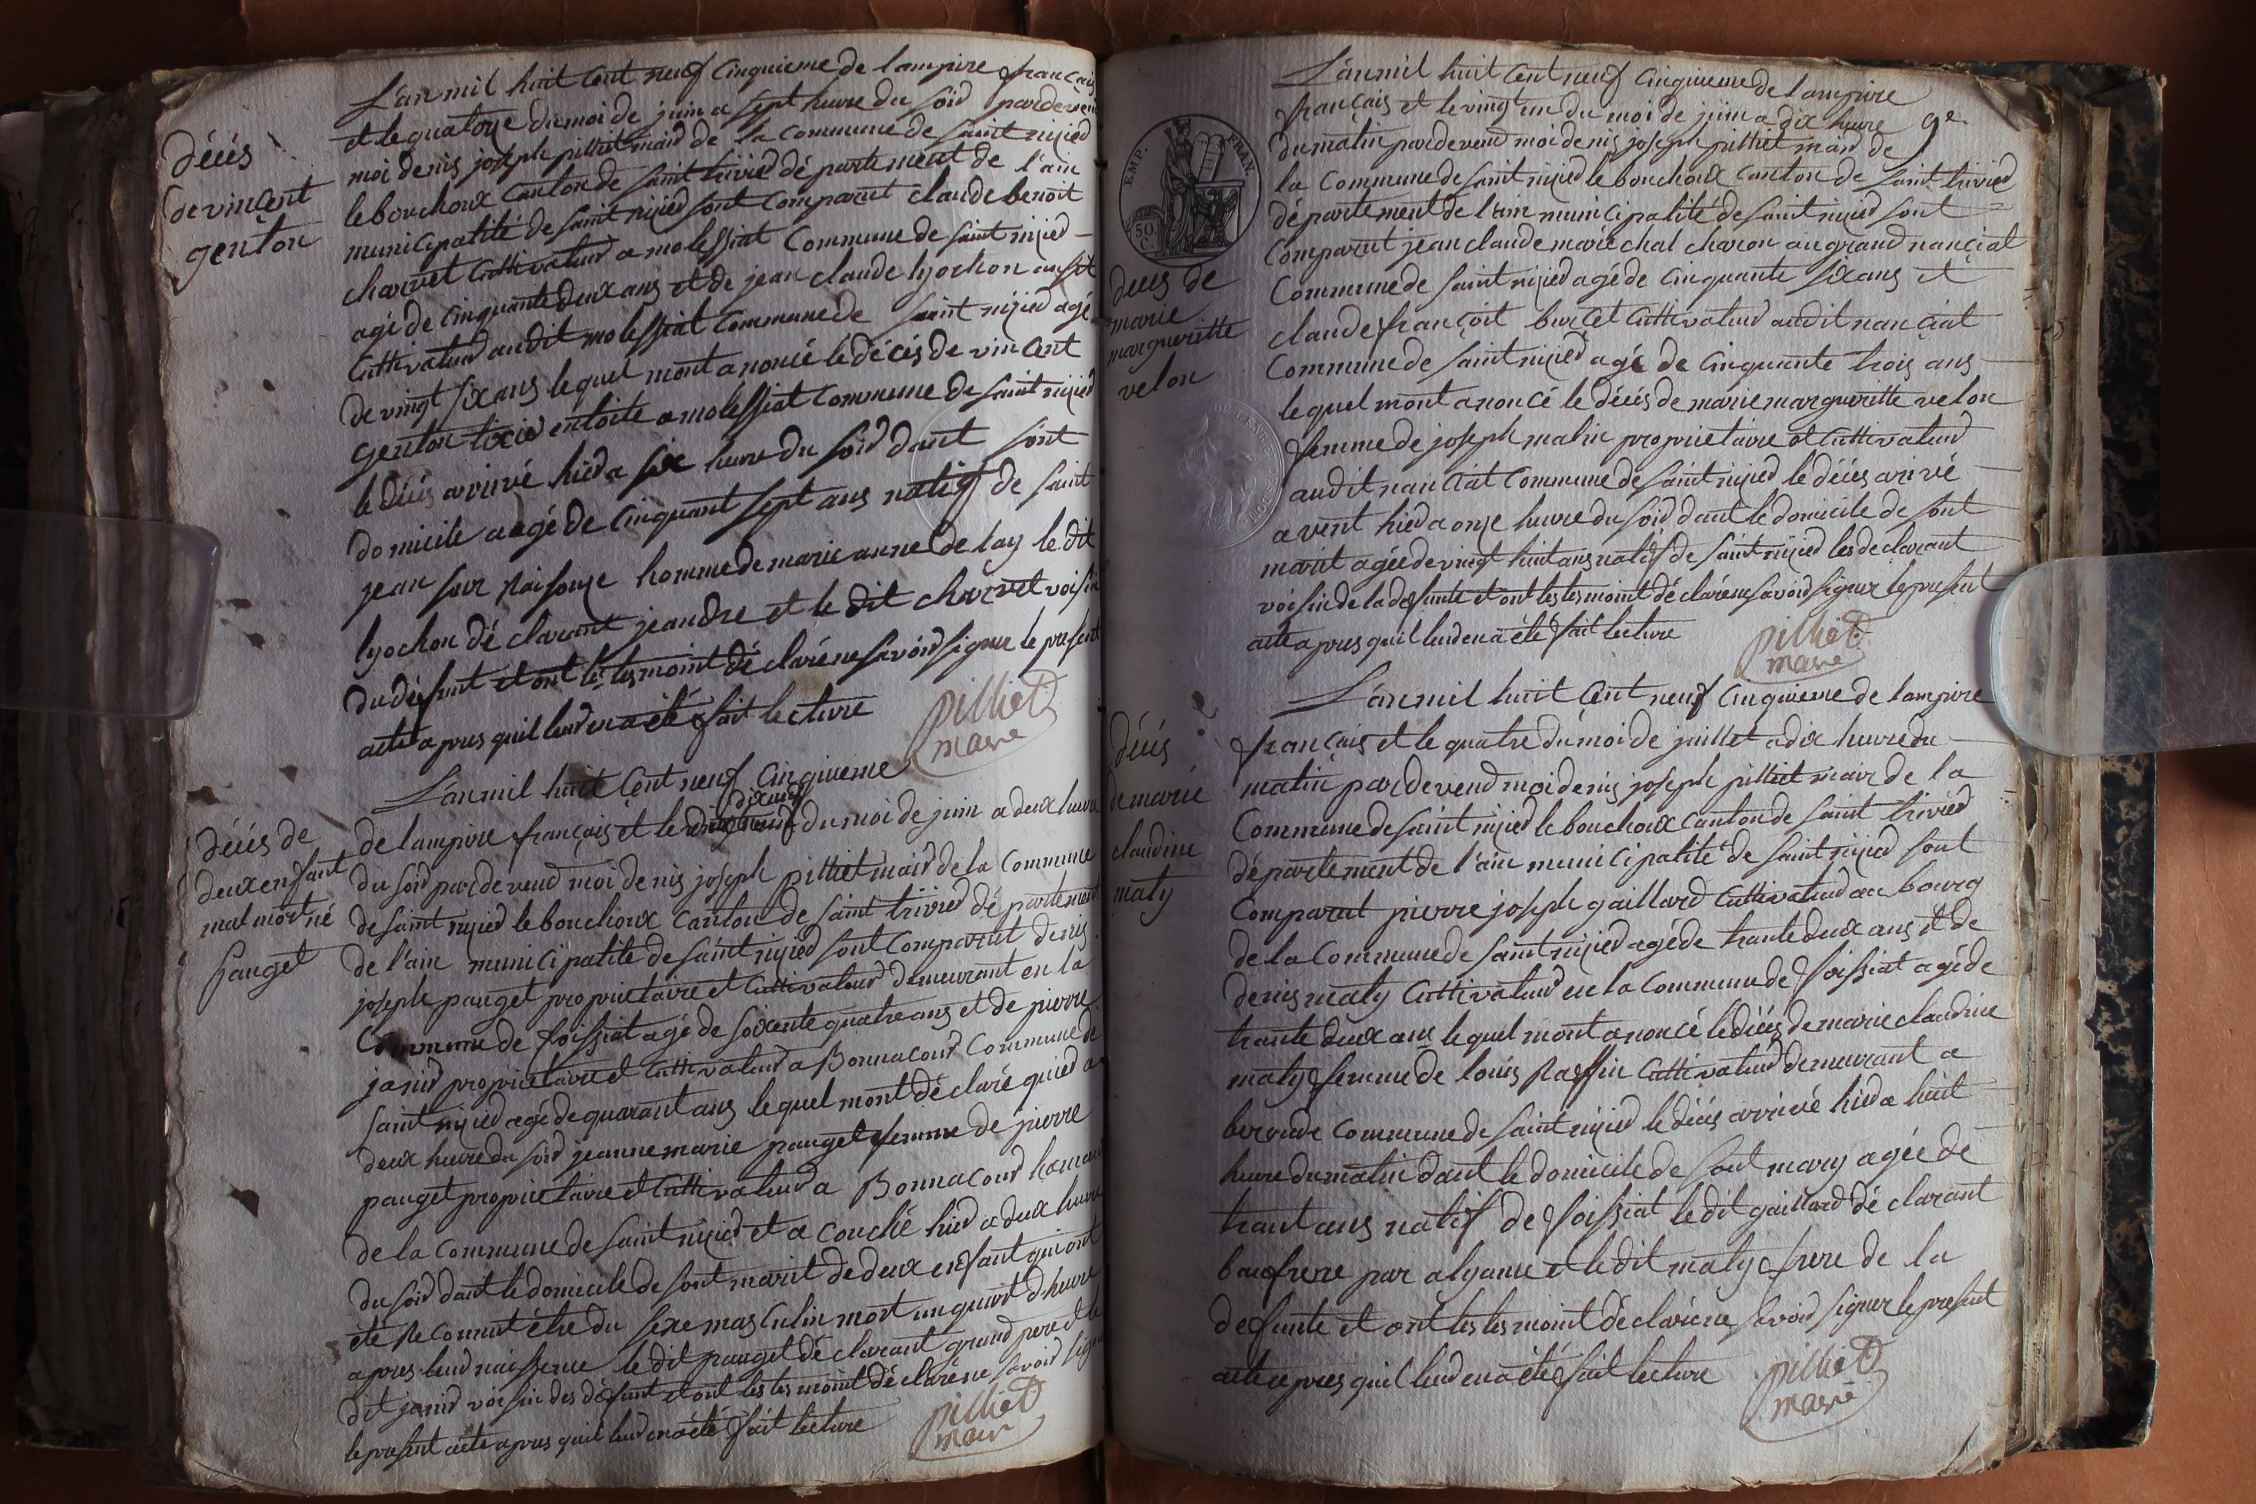 décés
de vincent
genton
L'an mil huit cent neuf cinquieme de l ampire français
et le quatorze du moi de juin a sept heure du soir pardevend
moi denis joseph pilliet mair de la commune de saint nizied
le bouchoux canton de saint trivied département de l'ain
municipalité de saint nizied sont comparut claude benoit
charvet cultivateur a molessiat commune de saint nizied
agé de cinquante deux ans et de jean claude lyochon aussit
cultivateur audit molessiat commune de saint nizied agé
de vingt six ans lequel mont anoncé le décés de vincent
genton tixier entoile a molessiat commune de saint nizied
le décés arrivé hied a six heure du soir dant sont
domicile aagé de cinquant sept ans natif de saint
jean sur raisouze homme de marie anne delay le dit
lyochon déclarant jeandre et le dit charvet voisin
du défunt et ont les tesmoint déclaré ne savoir signer le present
acte apres quil leur en a été fait lecture
pilliet
maire
décés de
deux enfant
mal mort né
pauget
L'an mil huit cent neuf cinqiueme
de lampire français et le dixneuf du moi de juin a deux heure
du soir pardevend moi denis joseph pilliet mair de la commune
de saint nizied le bouchoux canton de saint trivied département
de l'ain municipalité de saint nizied sont comparut denis
joseph pauget proprietaire et cultivateur demeurant en la
commune de foissiat agé de soixente quatre ans et de pierre
janid proprietaire et cultivateur a Bonnacourd commune de
saint nizied agé de quarant ans lequel mont déclaré quied a
deux heure du soir jeanne marie pauget femme de pierre
pauget proprietaire et cultivateur a Bonnacourd hamaut
de la commune de saint nizied et a couché hied a deux heure
du soir dant le domicile de sont marit de deux enfant qui ont
été reconnut être du sexe masculin mort un quart d heure
apres leur naissence le dit pauget déclarant grand pere et le
dit janid voisin des défunt et ont les tesmoint déclaré ne savoir signer
le present acte apres quil leur en a été fait lecture
pilliet
mair
EMP. FRAN.
50 C.
9e
décés de
marie
marguerittte
velon
L'an mil huit cent neuf cinqiueme de l ampire
français et le vingt un du moi de juin a dix heure
du matin pardevend moi denis joseph pilliet mair de
la commune de saint nizied le bouchoux canton de saint trivied
département de l'ain municipalité de saint nizied sont
comparut jean claude maréchal charon au grand nanciat
commune de saint nizied agé de cinquante six ans et
claude françoit burcet cultivateur audit nanciat
commune de saint nizied agé de cinquante trois ans
lequel mont anoncé le décés de marie marguerittte velon
femme de joseph matin proprietaire et cultivateur
audit nanciat commune de saint nizied le décés arivé
avent hied a onze heure du soir dant le domicile de sont
marit agée de vingt huit ans natif de saint nizied les declarant
voisin de la defunte et ont les tesmoint déclaré ne savoir signer le present
acte apres quil leur en a été fait lecture
pilliet
maire
décés
de marie
claudine
maty
L'an mil huit cent neuf cinquieme de lampire
français et le quatre du moi de juillet a dix heure du
matin pardevend moi denis joseph pilliet mair de la
commune de saint nizied le bouchoux canton de saint trivied
département de l'ain municipalité de saint nizied sont
comparut pierre joseph gaillard cultivateur au bourg
de la commune de saint nizied agé de trante deux ans et de
denis maty cultivateur en la commune de foissiat agé de
trante deux ans lequel mont anoncé le décés de marie claudine
maty femme de louis raffin cultivateur demeurant a
commune de saint nizied le décés arrivé hied a huit
heure du matin dant le domicile de sont mary agée de
trant ans natif de foissiat le dit gaillard déclarant
baufrere par alyance et le dit maty frere de la
defunte et ont les tesmoint déclaré ne savoir signer le present
acte apres quil leur en a été fait lecture
pilliet
maire